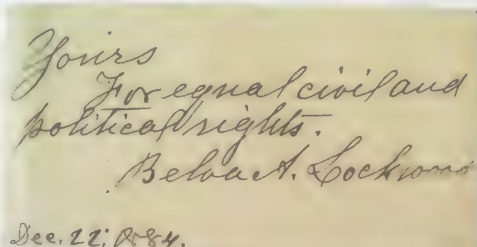 Yours
For equal civil and
political rights.
Belva A. Lockwood
Dec. 22, 1884.